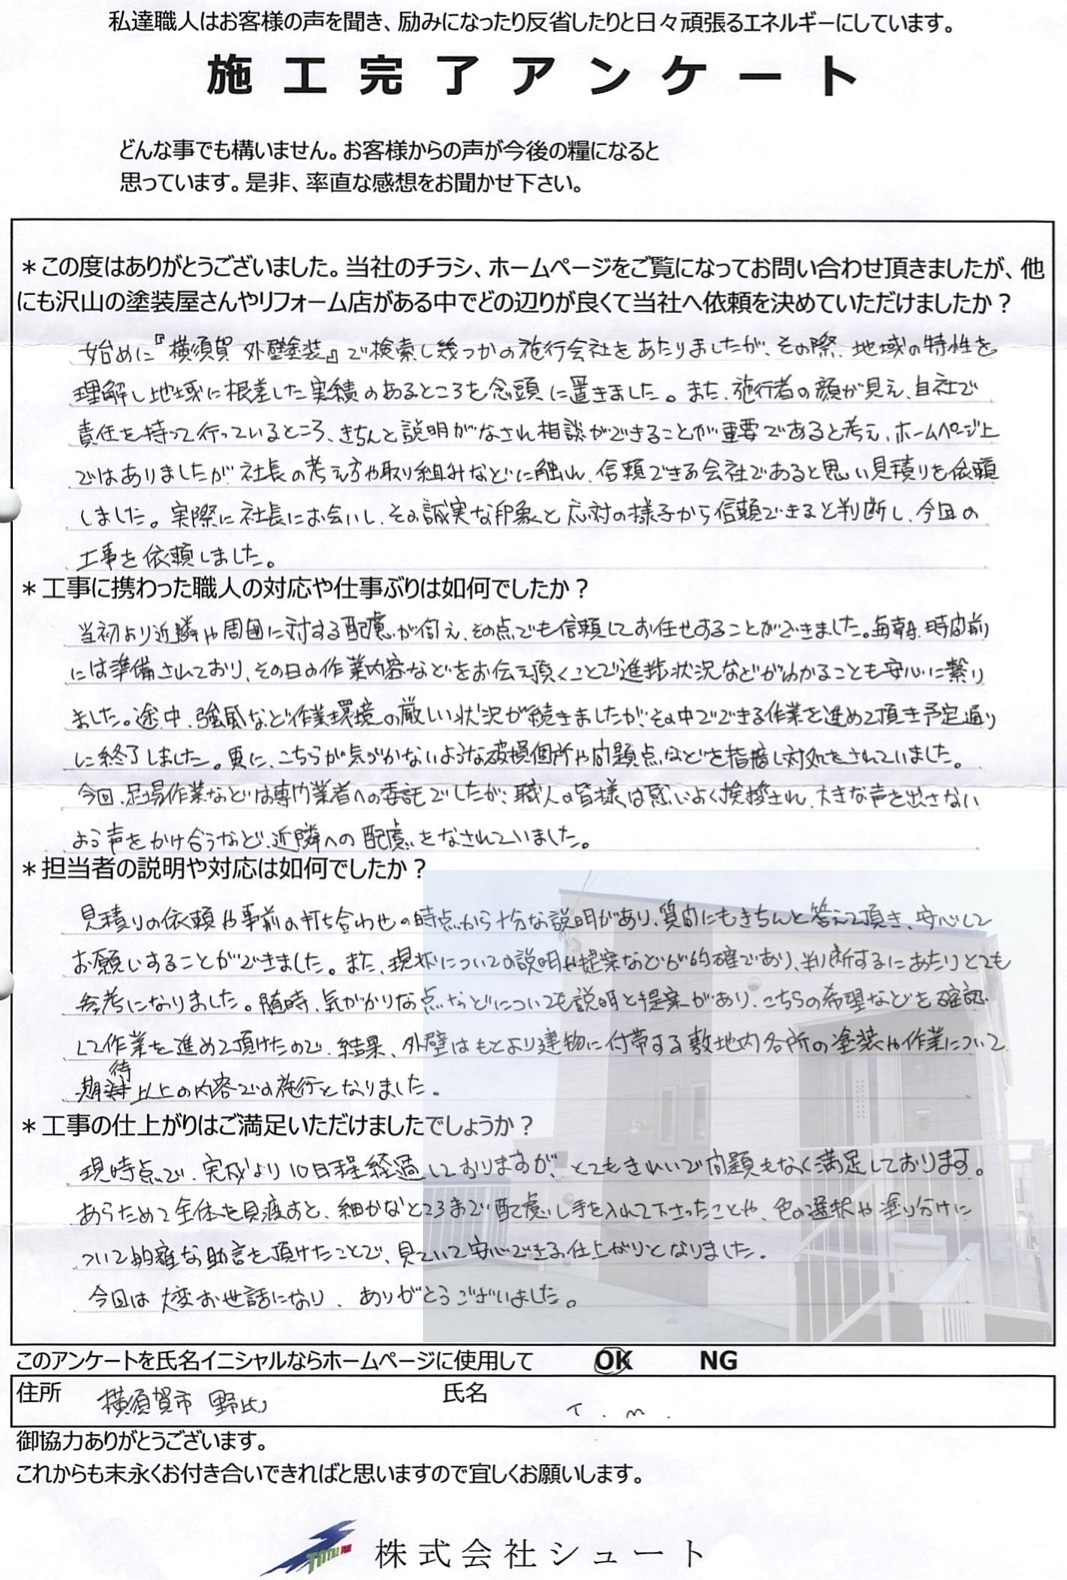 私達職人はお客様の声を聞き、励みになったり反省したりと日々頑張るエネルギーにしています。
施工完了アンケート
どんな事でも構いません。お客様からの声が今後の糧になると
思っています。是非、率直な感想をお聞かせ下さい。
＊この度はありがとうございました。当社のチラシ、ホームページをご覧になってお問い合わせ頂きましたが、他
にも沢山の塗装屋さんやリフォーム店がある中でどの辺りが良くて当社へ依頼を決めていただけましたか？
始めに『横須賀 外壁塗装』で検索し幾つかの施行会社をあたりましたが、その際、地域の特性を
理解し地域に根差した実績のあるところを念頭に置きました。また、施行者の顔が見え、自社で
責任を持って行っているところ、きちんと説明がなされ相談ができることが重要であると考え、ホームページ上
ではありましたが社長の考え方や取り組みなどに触れ、信頼できる会社であると思い見積りを依頼
しました。実際に社長にお会いし、その誠実な印象と応対の様子から信頼できると判断し、今回の
工事を依頼しました。
＊工事に携わった職人の対応や仕事ぶりは如何でしたか？
当初より近隣や周囲に対する配慮が伺え、その点でも信頼してお任せすることができました。毎朝、時間前
には準備されており、その日の作業内容などをお伝え頂くことで進捗状況などがわかることも安心に繋り
ました。途中、強風など作業環境の厳しい状況が続きましたが、その中でできる作業を進めて頂き予定通り
に終了しました。更に、こちらが気づかないような破損個所や問題点などを指摘し対処をされていました。
今回、足場作業などは専門業者への委託でしたが、職人の皆様は感じよく挨拶され、大きな声を出さない
よう声をかけ合うなど、近隣への配慮をなされていました。
＊担当者の説明や対応は如何でしたか？
見積りの依頼や事前の打ち合わせの時点から十分な説明があり、質問にもきちんと答えて頂き、安心して
お願いすることができました。また、現状についての説明や提案などが的確であり、判断するにあたりとても
参考になりました。随時、気がかりな点などについても説明と提案があり、こちらの希望などを確認
して作業を進めて頂けたので、結果、外壁はもとより建物に付帯する敷地内各所の塗装や作業について
期待以上の内容での施行となりました。
＊工事の仕上がりはご満足いただけましたでしょうか？
現時点で、完成より10日程経過しておりますが、とてもきれいで問題もなく満足しております。
あらためて全体を見渡すと、細かなところまで配慮し手を入れて下さったことや、色の選択や塗り分けに
ついて的確な助言を頂けたことで、見ていて安心できる仕上がりとなりました。
今回は大変お世話になり、ありがとうございました。
このアンケートを氏名イニシャルならホームページに使用して OK NG
住所 横須賀市 野比 氏名 T. M.
御協力ありがとうございます。
これからも末永くお付き合いできればと思いますので宜しくお願いします。
株式会社シュート